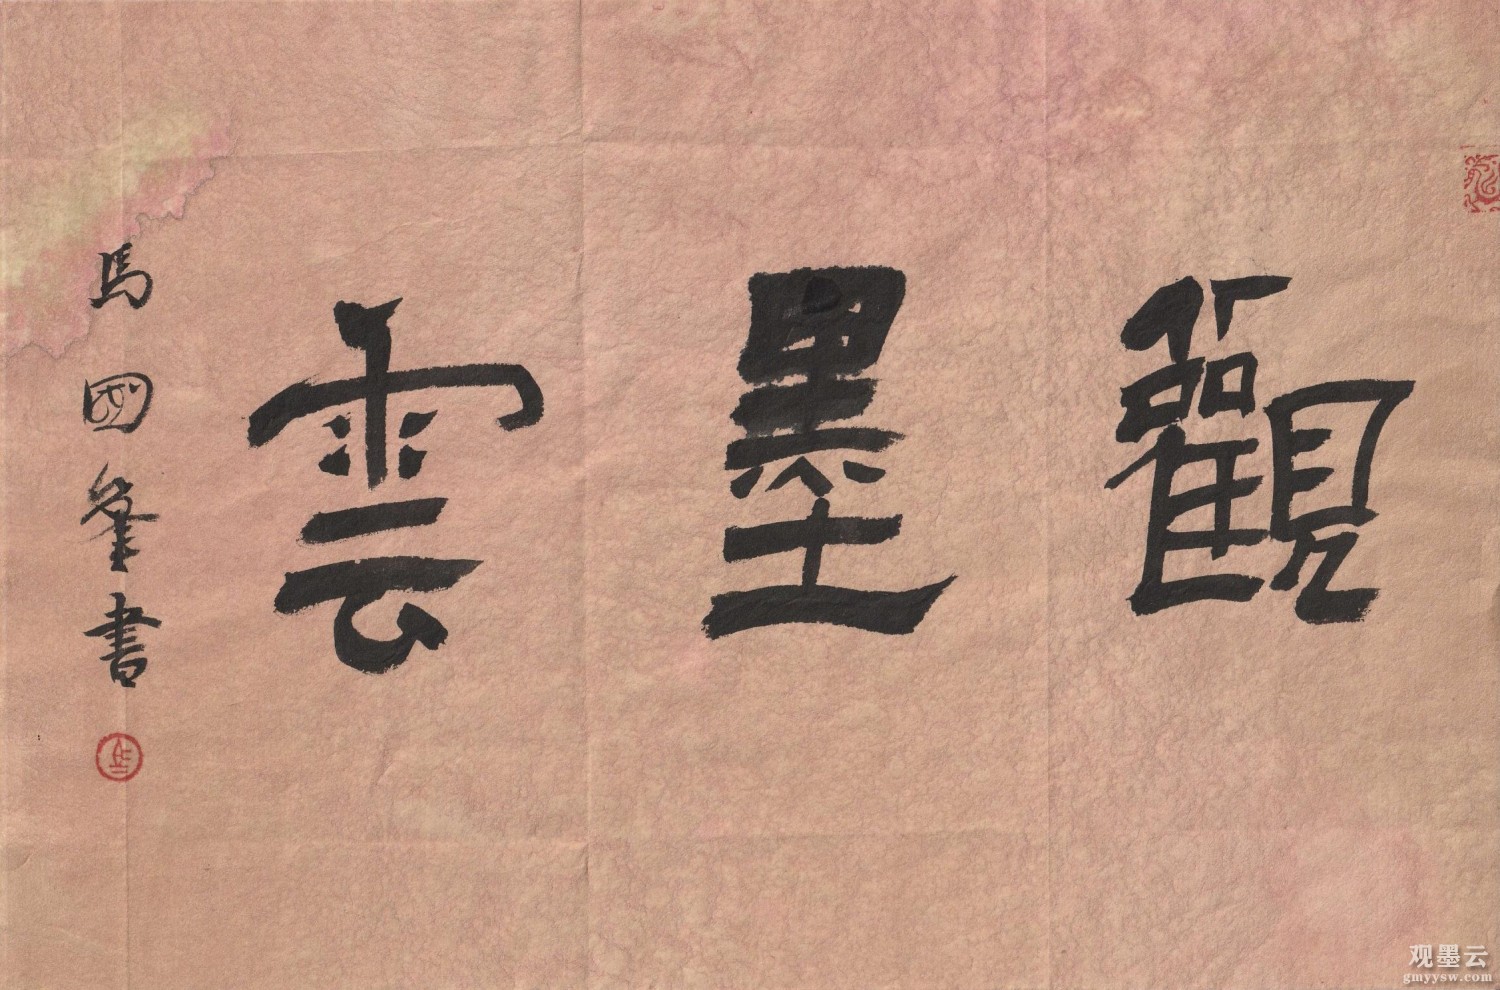 觀墨雲
馬國峯書
观墨云
gmyysw.com